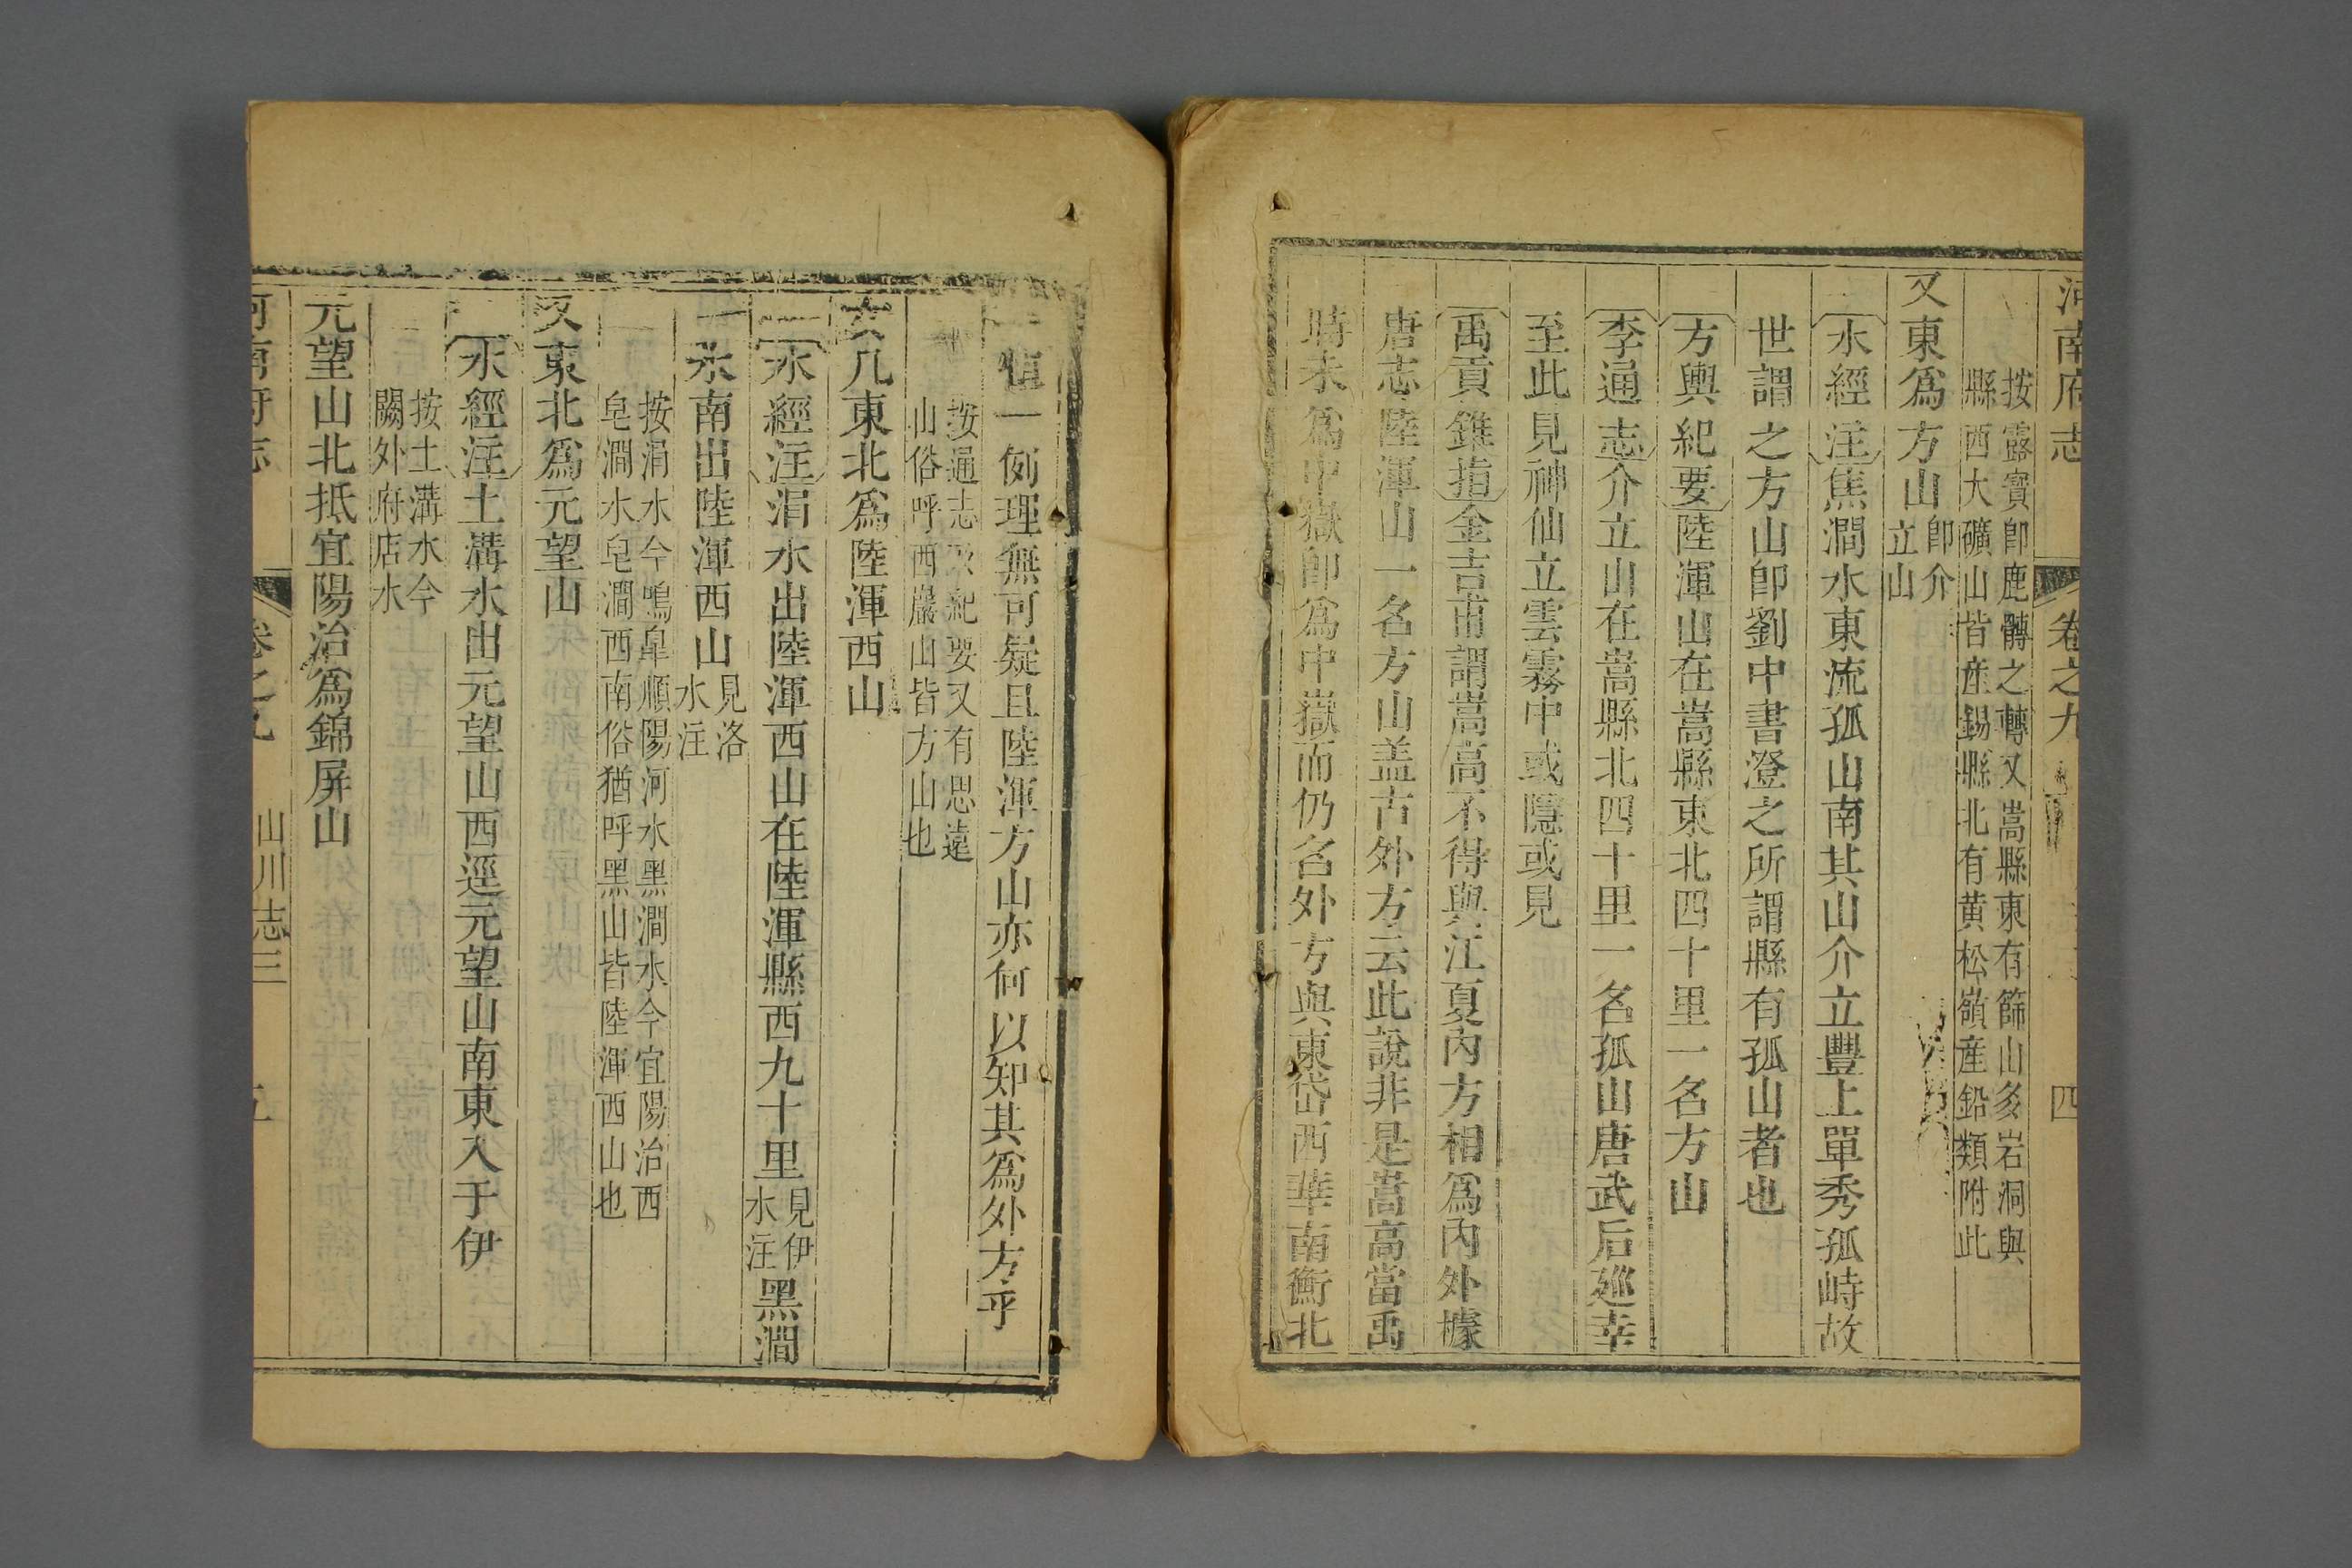 河南府志 卷之九 四
按露寶卽鹿髆之轉又嵩縣東有篩山多岩洞與
縣西大礦山皆産錫縣北有黄松嶺産鉛類附此
又東爲方山卽介立山
水經注焦澗水東流孤山南其山介立豐上單秀孤峙故
世謂之方山卽劉中書澄之所謂縣有孤山者也
方輿紀要陸渾山在嵩縣東北四十里一名方山
李通志介立山在嵩縣北四十里一名孤山唐武后廵幸
至此見神仙立雲霧中或隱或見
禹貢錐指金吉甫謂嵩高不得與江夏内方相爲内外據
唐志陸渾山一名方山盖古外方云此說非是嵩高當禹
時未爲中嶽卽爲中嶽而仍名外方與東岱西華南衡北
恒一例理無可疑且陸渾方山亦何以知其爲外方乎
按通志及紀要又有思遠
山俗呼西巖山皆方山也
又東北爲陸渾西山
水經注涓水出陸渾西山在陸渾縣西九十里見伊水注黑澗
水南出陸渾西山見洛水注
按涓水今鳴皐順陽河水黑澗水今宜陽治西
皂澗水皂澗西南俗猶呼黑山皆陸渾西山也
又東北爲元望山
水經注土溝水出元望山西逕元望山南東入于伊
按土溝水今
闕外府店水
元望山北抵宜陽治爲錦屏山
河南府志 卷之九 山川志三 五